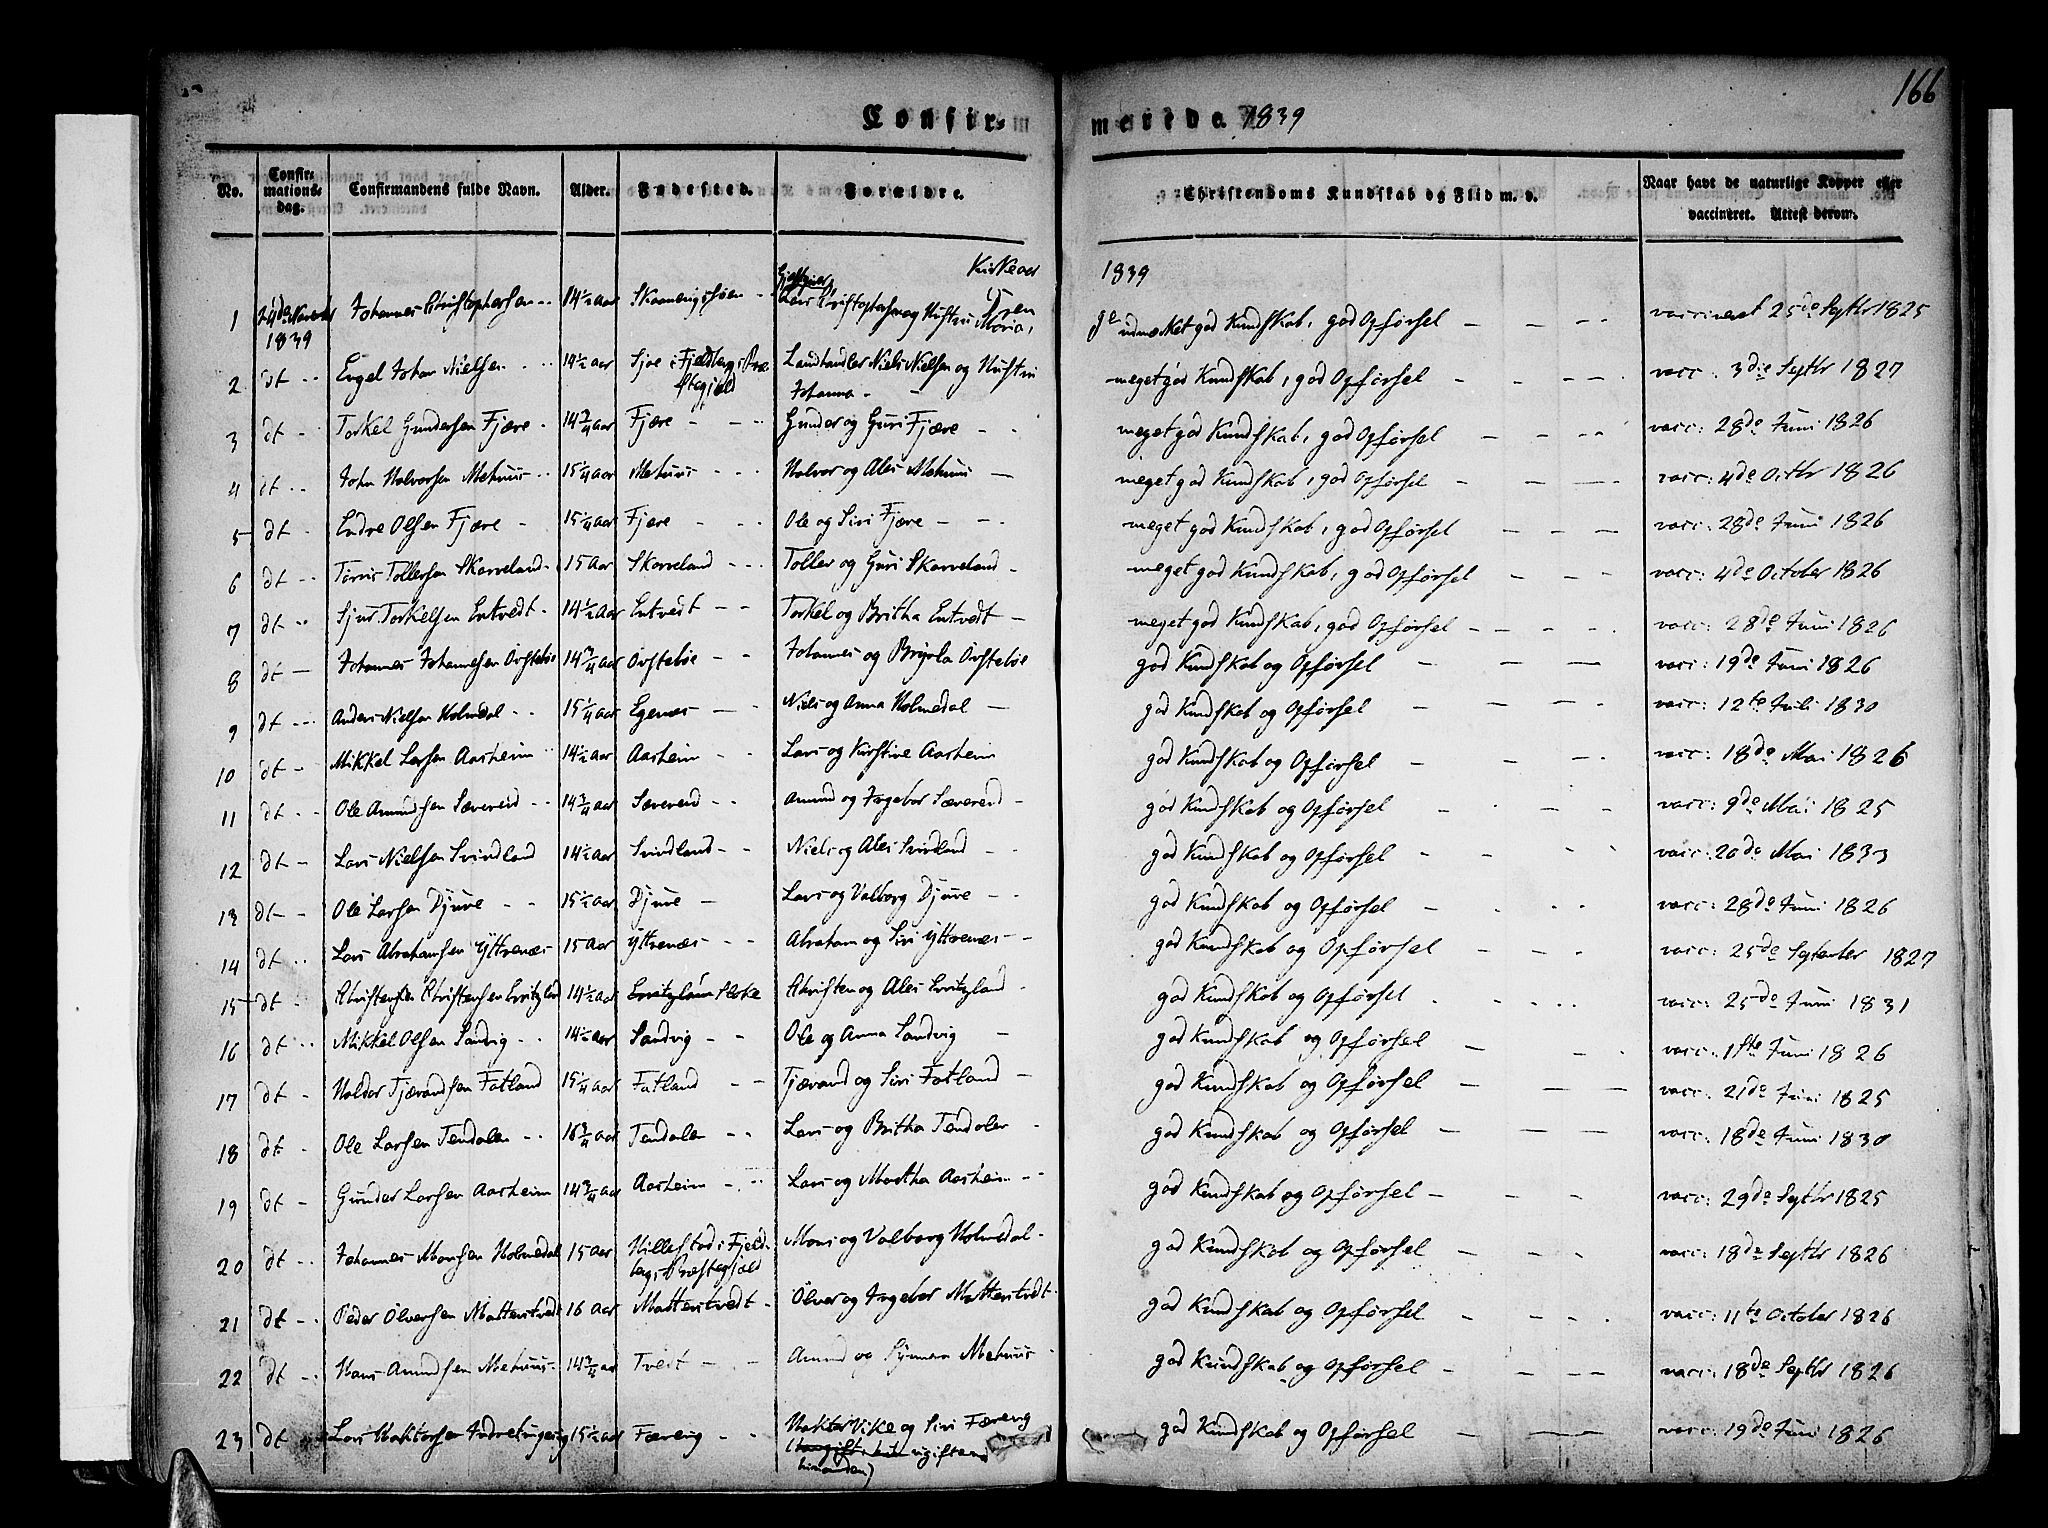 166
Confirmerede. 1839
No. Confirmationsdag. Confirmandens fulde Navn. Alder. Fødested. Forældre. Christendoms Kundskab og Flid m. v. Naar havt de naturlige Kopper eller vaccineret. Attest derom.
Kirkeaar 1839
1 24de 1839 Johannes Christophersen 14½ aar Lars Christophersen og Hustru Maria, udmærket god Kundskab, god Opførsel vaccineret 25de Septbr 1825
2 dt Engel Johan Nielsen 14½ aar Sjoe i Fjeldbergs Præstegjeld Landhandler Niels Nielsen og Hustru Johanna meget god Kundskab, god Opførsel vacc: 3die Septbr 1827
3 dt Torkel Gundersen Fjære 14¾ aar Fjære Gunder og Guri Fjære meget god Kundskab, god Opførsel vacc: 28de Juni 1826
4 dt John Halvorsen Mehuus 15¼ aar Mehuus Halvor og Ales Mehuus meget god Kundskab, god Opførsel vacc: 4de Octbr 1826
5 dt Endre Olsen Fjære 15¼ aar Fjære Ole og Siri Fjære meget god Kundskab, god Opførsel vacc: 28de Juni 1826
6 dt Tollersen Skarveland 15 aar Skarveland Toller og Guri Skarveland meget god Kundskab, god Opførsel vacc: 4de October 1826
7 dt Sjur Torkelsen Entvedt 14½ aar Entvedt Torkel og Britha Entvedt meget god Kundskab, god Opførsel vacc: 28de Juni 1826
8 dt Johannes Johannesen Østebøe 14¾ aar Johannes og god Kundskab og Opførsel vacc: 19de Juni 1826
9 dt Anders Nielsen Holmedal 15¼ aar Egenæs Niels og Anna Holmedal god Kundskab og Opførsel vacc: 12te Juli 1830
10 dt Mikkel Larsen Aasheim 14½ aar Aasheim Lars og Kirstine Aasheim god Kundskab og Opførsel vacc: 18de Mai 1826
11 dt Ole Amundsen Sævereid 14¾ aar Sævereid Amund og Ingebor Sævereid god Kundskab og Opførsel vacc: 9de Mai 1825
12 dt Lars Nielsen Svindland 14½ aar Svindland Niels og Ales Svindland god Kundskab og Opførsel vacc: 20de Mai 1833
13 dt Ole Larsen Djuve 15½ aar Djuve Lars og Valborg Djuve god Kundskab og Opførsel vacc: 28de Juni 1826
14 dt Lars Abrahamsen Yttrenæs 15 aar Yttrenæs Abraham og Siri Yttrenæs god Kundskab og Opførsel vacc: 25de September 1827
15 dt Christensen 14½ aar Christen og Ales god Kundskab og Opførsel vacc: 25de Juni 1831
16 dt Mikkel Olsen Sandvig 14½ aar Sandvig Ole og Anna Sandvig god Kundskab og Opførsel vacc: 1ste Juni 1826
17 dt Haldor Tjærandsen Fatland 15¼ aar Fatland Tjærand og Siri Fatland god Kundskab og Opførsel vacc: 21de Juni 1825
18 dt Ole Larsen Tendalen 16¾ aar Tendalen Lars og Britha Tendalen god Kundskab og Opførsel vacc: 18de Juni 1830
19 dt Gunder Larsen Aasheim 14¾ aar Aasheim Lars og Martha Aasheim god Kundskab og Opførsel vacc: 29de Septbr 1825
20 dt Johannes Monsen Holmedal 15 aar Hillestad i Fjeldbergs Præstegjeld Mons og Valborg Holmedal god Kundskab og Opførsel vacc: 18de Septbr 1826
21 dt Peder Ølversen Matterstvedt 16 aar Matterstvedt Ølver og Ingebor Matterstvedt god Kundskab og Opførsel vacc: 11te October 1826
22 dt Hans Amundsen Mehuus 14¾ aar Tvedt Amund og Synneva Mehuus god Kundskab og Opførsel vacc: 18de Septbr 1826
23 dt Lars 15½ aar Færevig Vike og Siri Færevig god Kundskab og Opførsel vacc: 19de Juni 1826